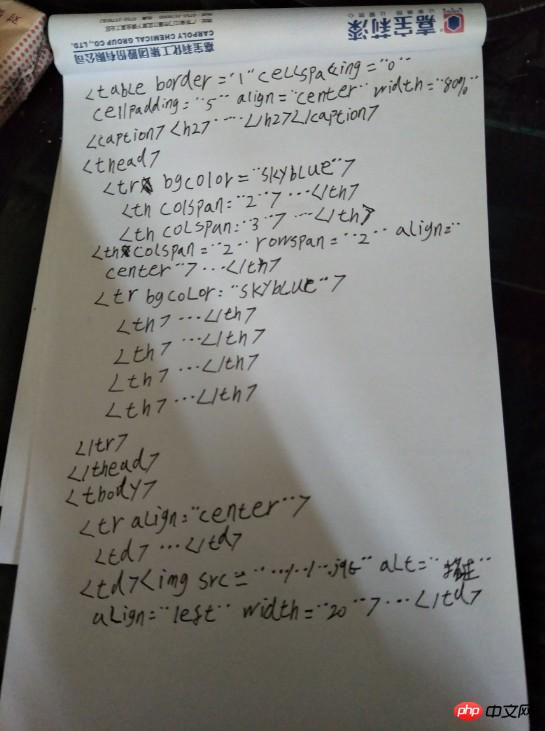 嘉宝莉漆
嘉宝莉化工集团股份有限公司
CARPOLY CHEMICAL GROUP CO., LTD.
<table border="1" cellspacing="0"
cellpadding="5" align="center" width="80%"
<caption> <h2> ... </h2></caption>
<thead>
<tr bgcolor="skyblue">
<th colspan="2">...</th>
<th colspan="3">...</th>
<th colspan="2" rowspan="2" align="
center">...</th>
<tr bgcolor="skyblue">
<th>...</th>
<th>...</th>
<th>...</th>
<th>...</th>
</tr>
</thead>
<tbody>
<tr align="center">
<td>...</td>
<td><img src= alt=
align="left" width="20">...</td>
php 中文网